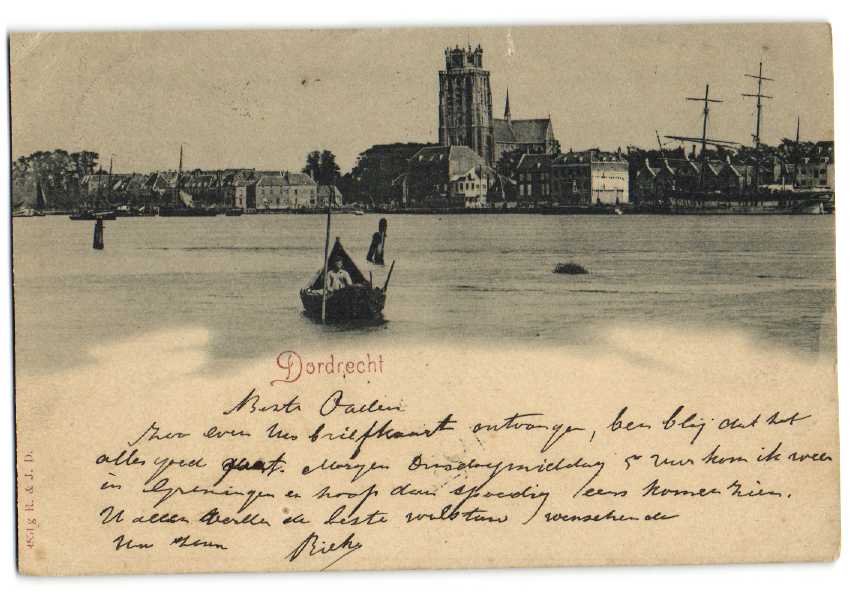 Dordrecht
Beste Ouden
Zoo even Uw briefkaart ontvangen, ben blij dat het
alles goed gaat. Morgen Dinsdagmiddag 5 uur kom ik weer
in Groningen en hoop dan spoedig eens komen zien.
U allen verder de beste welstand wenschende
Uw zoon Rieks
4854 g R. & J. D.